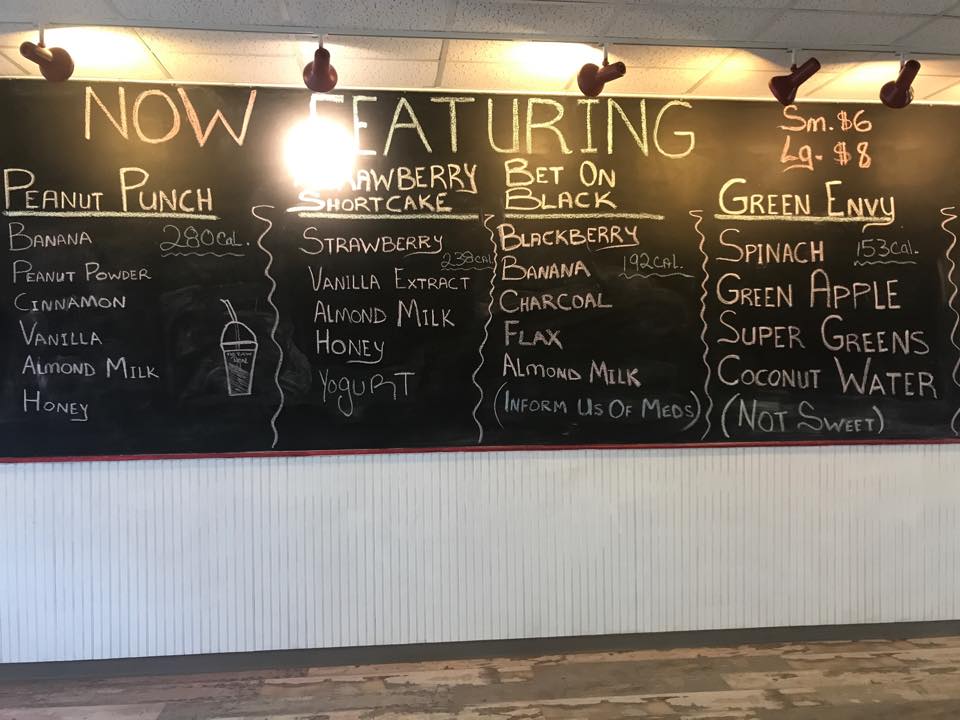 NOW FEATURING
Sm. $6
Lg. $8
PEANUT PUNCH
BANANA 280 CAL.
PEANUT POWDER
CINNAMON
VANILLA
ALMOND MILK
HONEY
STRAWBERRY
SHORTCAKE
STRAWBERRY
238 CAL
VANILLA EXTRACT
ALMOND MILK
HONEY
YoguRT
BET ON
BLACK
BLACKBERRY
BANANA 192 CAL.
CHARCOAL
FLAX
ALMOND MILK
(INFORM US OF MEDS)
GREEN ENVY
SPINACH 153 CAL.
GREEN APPLE
SUPER GREENS
COCONUT WATER
(NOT SWEET)